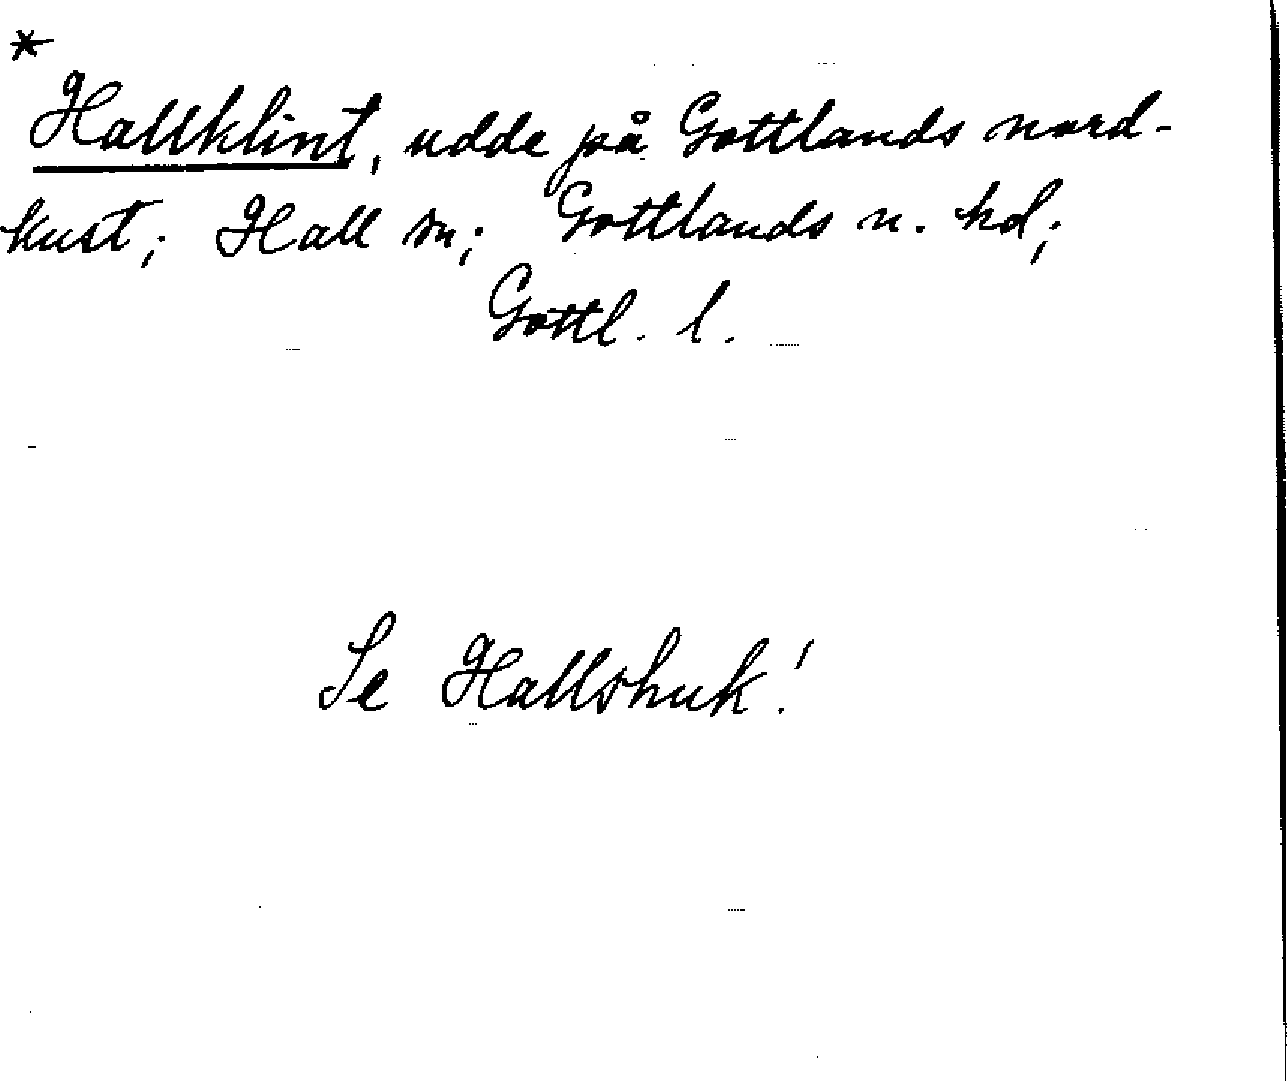 *
Hallklint, udde på Gottlands nord-
kust; Hall sn; Gottlands n. hd;
Gottl. l.
Se Hallshuk!